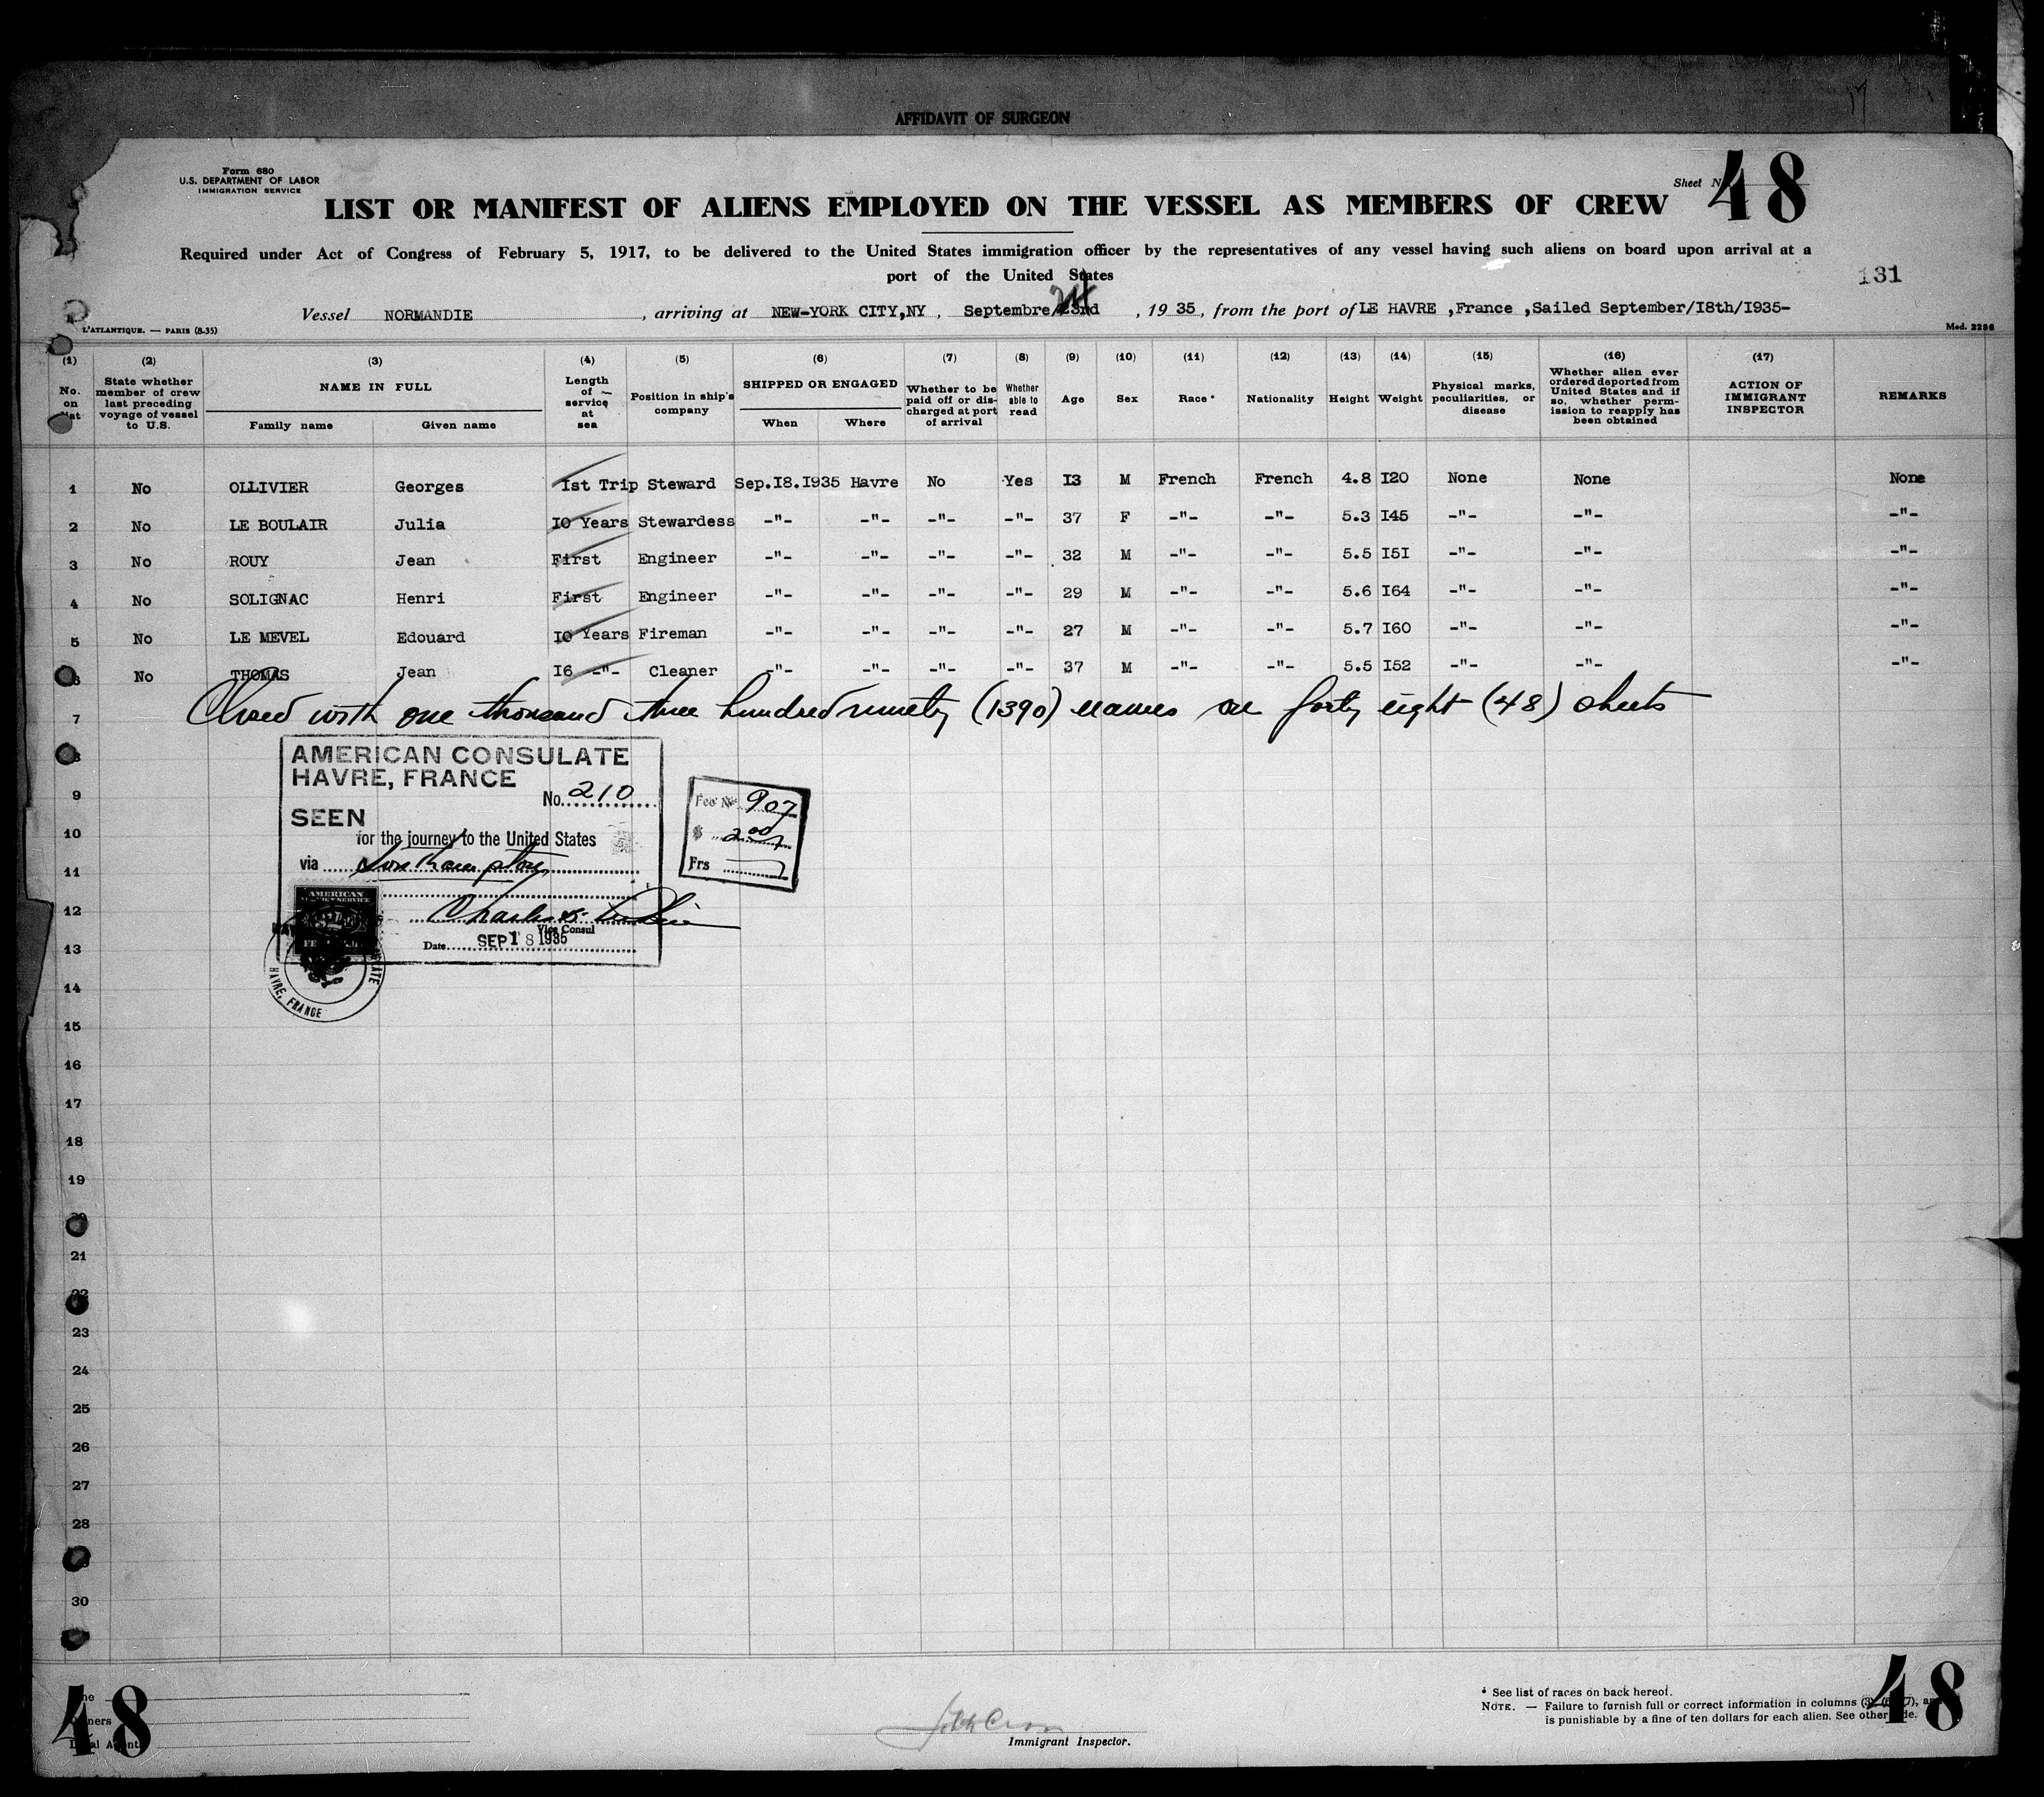 AFFIDAVIT OF SURGEON
Form 680
U.S. DEPARTMENT OF LABOR
IMMIGRATION SERVICE
Sheet N 48
LIST OR MANIFEST OF ALIENS EMPLOYED ON THE VESSEL AS MEMBERS OF CREW
Required under Act of Congress of February 5, 1917, to be delivered to the United States immigration officer by the representatives of any vessel having such aliens on board upon arrival at a
port of the United States
131
Vessel NORMANDIE, arriving at NEW-YORK CITY,NY, Septembre/23rd 24, 1935, from the port of LE HAVRE ,France ,Sailed September/I8th/I935-
L'ATLANTIQUE. — PARIS (8-35)
Mod. 2286
(1) (2) (3) (4) (5) (6) (7) (8) (9) (10) (11) (12) (13) (14) (15) (16) (17)
No. on list
State whether member of crew last preceding voyage of vessel to U.S.
NAME IN FULL
Family name
Given name
Length of service at sea
Position in ship's company
SHIPPED OR ENGAGED
When
Where
Whether to be paid off or discharged at port of arrival
Whether able to read
Age
Sex
Race *
Nationality
Height
Weight
Physical marks, peculiarities, or disease
Whether alien ever ordered deported from United States and if so, whether permission to reapply has been obtained
ACTION OF IMMIGRANT INSPECTOR
REMARKS
1 No OLLIVIER Georges Ist Trip Steward Sep.I8.I935 Havre No Yes I3 M French French 4.8 I20 None None None
2 No LE BOULAIR Julia IO Years Stewardess -"- -"- -"- -"- 37 F -"- -"- 5.3 I45 -"- -"- -"-
3 No ROUY Jean First Engineer -"- -"- -"- -"- 32 M -"- -"- 5.5 I5I -"- -"- -"-
4 No SOLIGNAC Henri First Engineer -"- -"- -"- -"- 29 M -"- -"- 5.6 I64 -"- -"- -"-
5 No LE MEVEL Edouard IO Years Fireman -"- -"- -"- -"- 27 M -"- -"- 5.7 I60 -"- -"- -"-
6 No THOMAS Jean I6 -"- Cleaner -"- -"- -"- -"- 37 M -"- -"- 5.5 I52 -"- -"- -"-
7 Closed with one thousand three hundred ninety (1390) names on forty eight (48) sheets
8
9
10
11
12
13
14
15
16
17
18
19
20
21
22
23
24
25
26
27
28
29
30
AMERICAN CONSULATE
HAVRE, FRANCE
No. 210
SEEN
for the journey to the United States
via Southampton
Vice Consul
Date SEP 18 1935
AMERICAN
HAVRE, FRANCE
Fee No 907
$ 2.00
Frs
48
Immigrant Inspector.
* See list of races on back hereof.
NOTE. — Failure to furnish full or correct information in columns (3), (6), (7), an
is punishable by a fine of ten dollars for each alien. See other de.
48